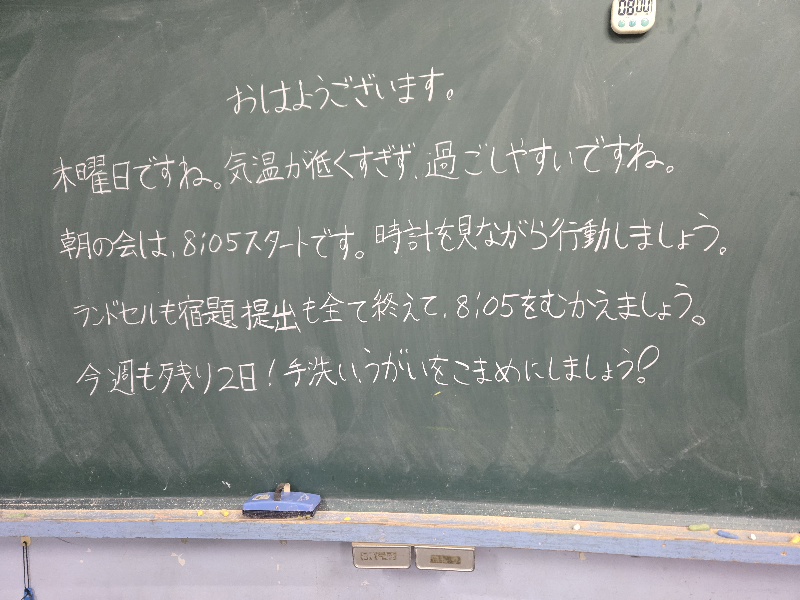 08:00
おはようございます。
木曜日ですね。気温が低くすぎず、過ごしやすいですね。
朝の会は、8:05スタートです。時計を見ながら行動しましょう。
ランドセルも宿題提出も全て終えて、8:05をむかえましょう。
今週も残り2日!手洗い、うがいをこまめにしましょう!